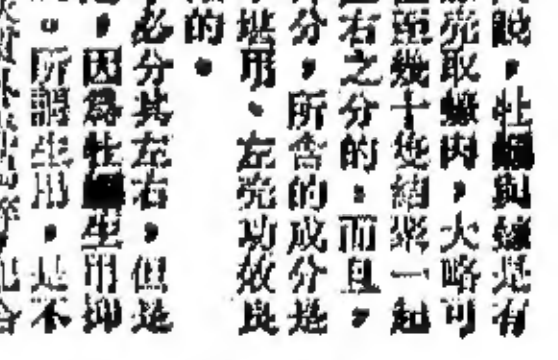 ，牡蠣與蠔是有
亮取蠔肉，大略可
幾十隻結聚一起
右之分的；而且，
分，所含的成分是
堪用、左亮功效良
的。
必分其左右，但是
，因為牡蠣生用抑
。所謂生用，是不